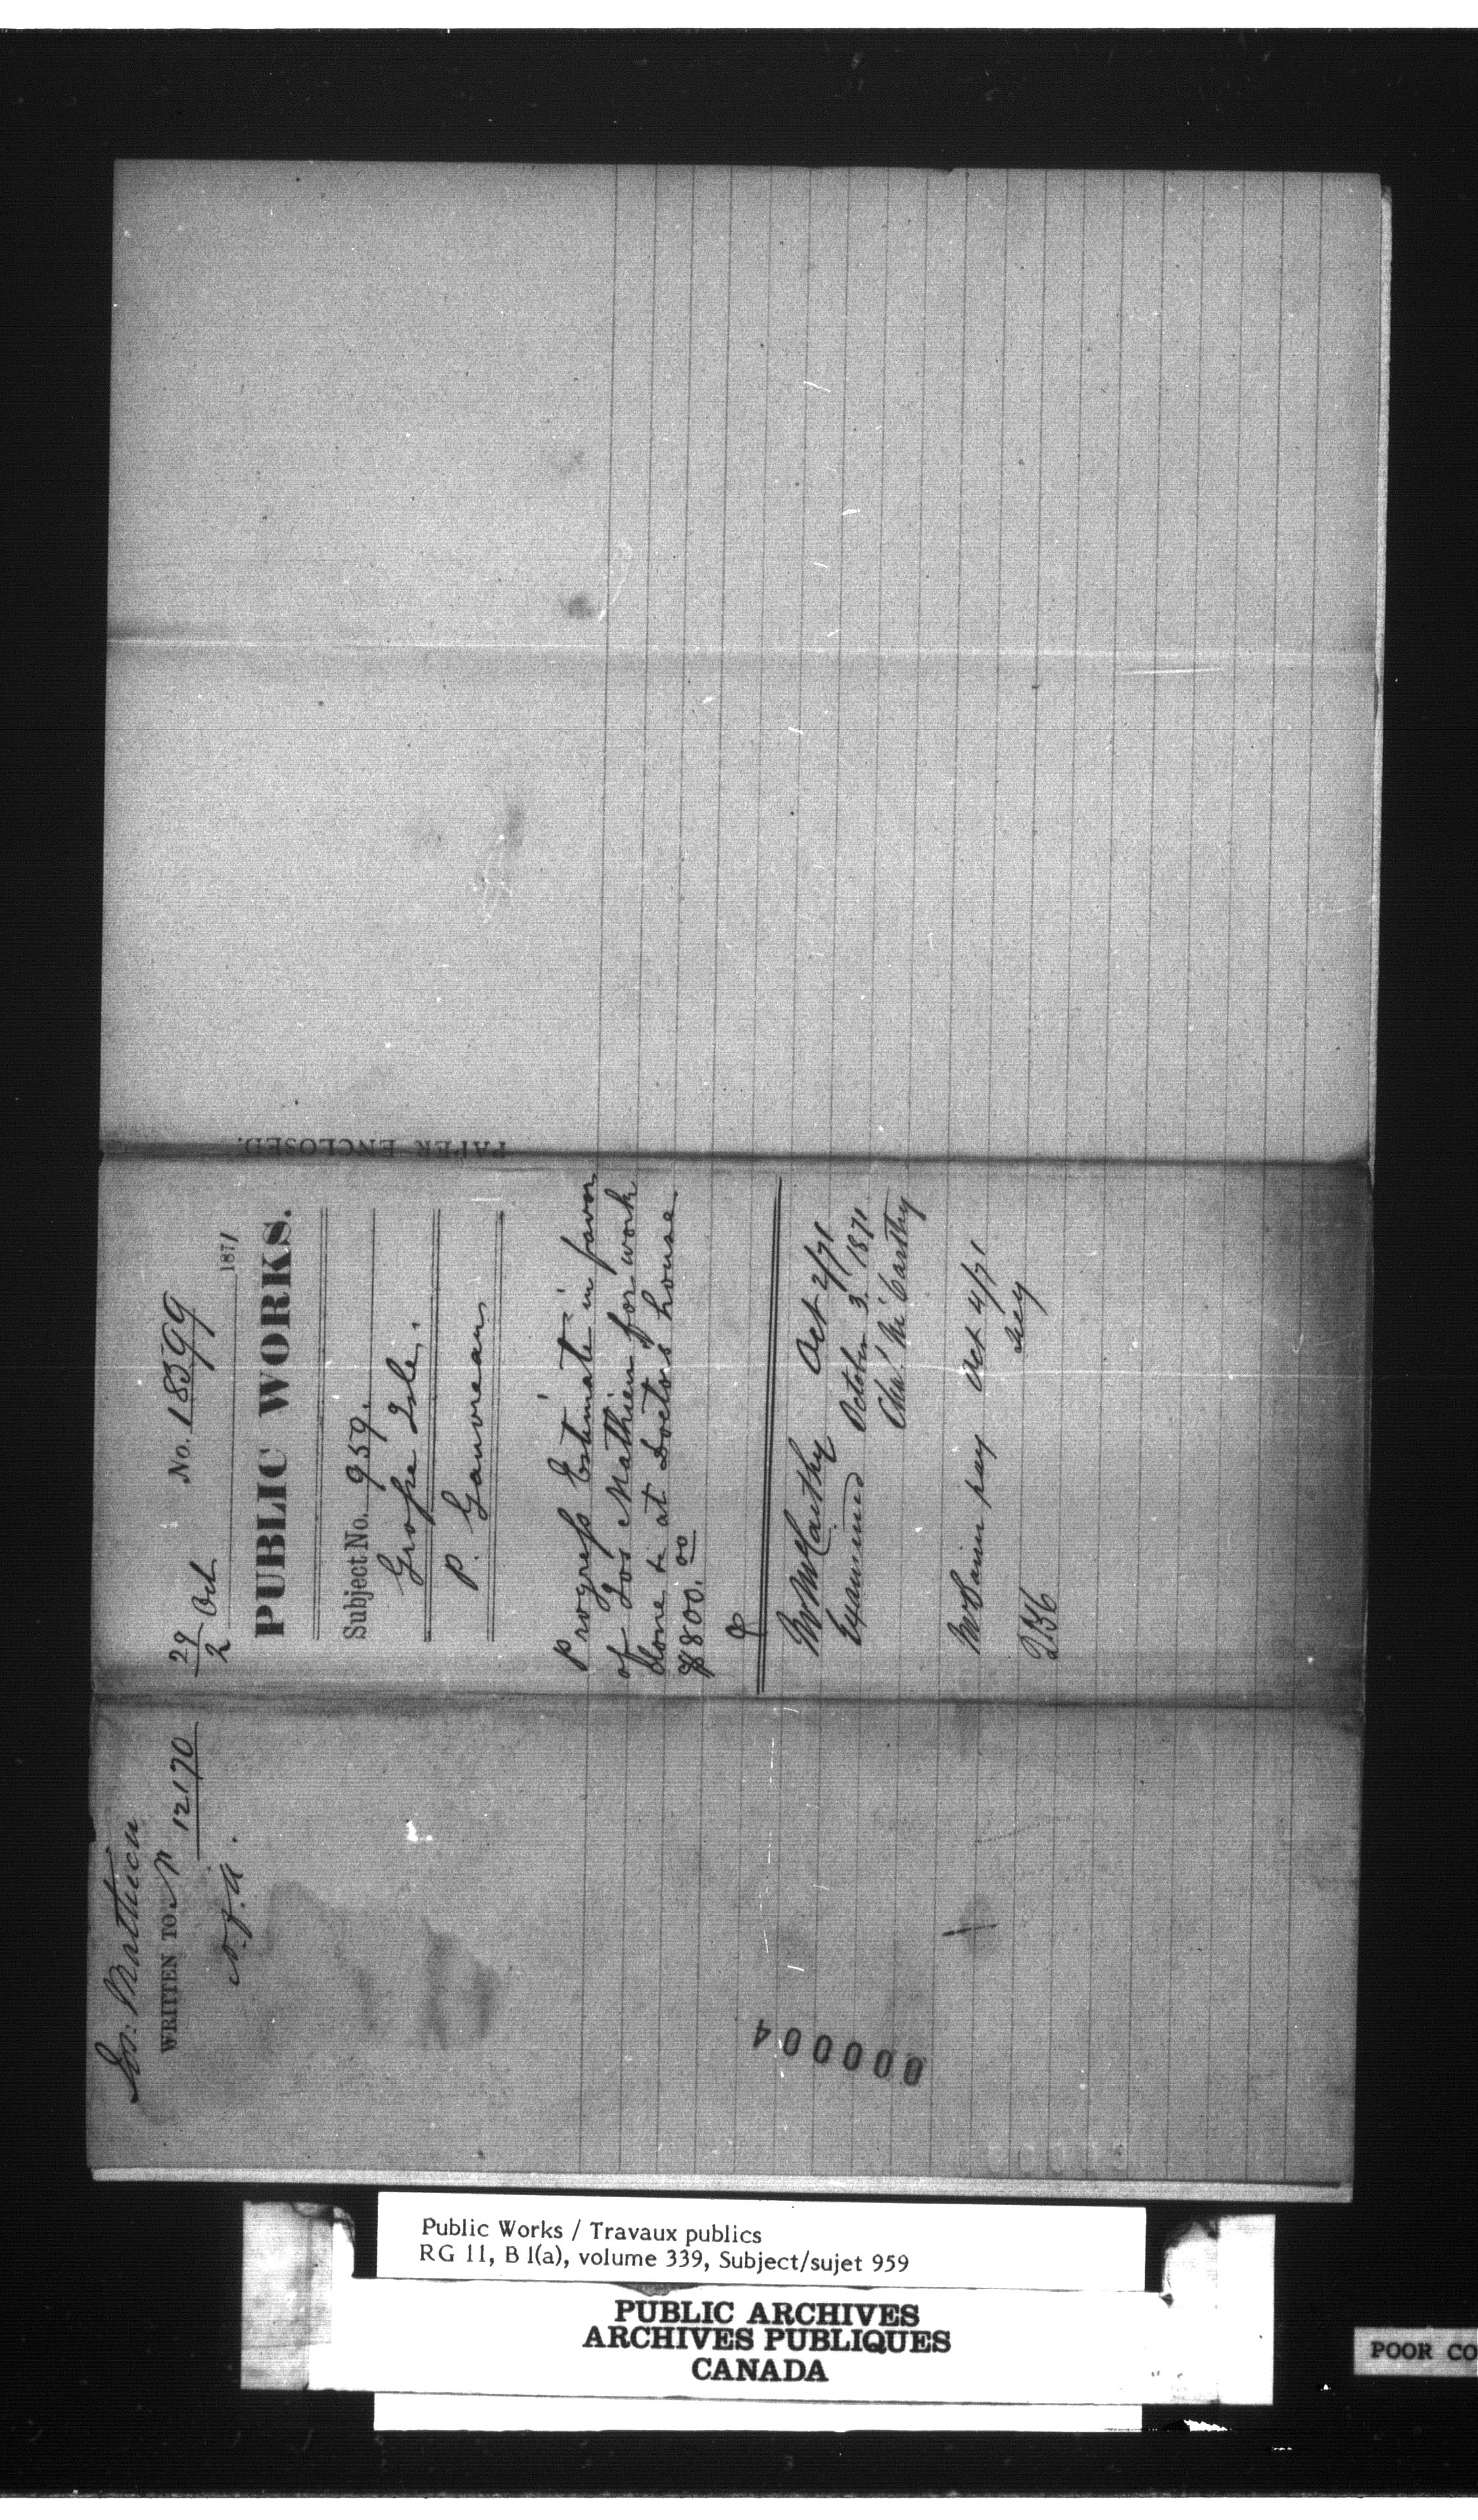 Jos: Mathieu
WRITTEN TO N 12170
29 Oct No. 18399
2
1871
PUBLIC WORKS.
Subject No. 959.
Grosse Isle.
P. Gauvreau
Progress Estimate in favor
of Jos Mathieu for work
done to at Doctors house
$800.00
Mr McCarthy Oct 2/71
Examined October 3. 1871
McCarthy
pay Oct 4/71
PAPER ENCLOSED.
000004
Public Works / Travaux publics
RG 11, B 1(a), volume 339, Subject/sujet 959
PUBLIC ARCHIVES
ARCHIVES PUBLIQUES
CANADA
POOR CO